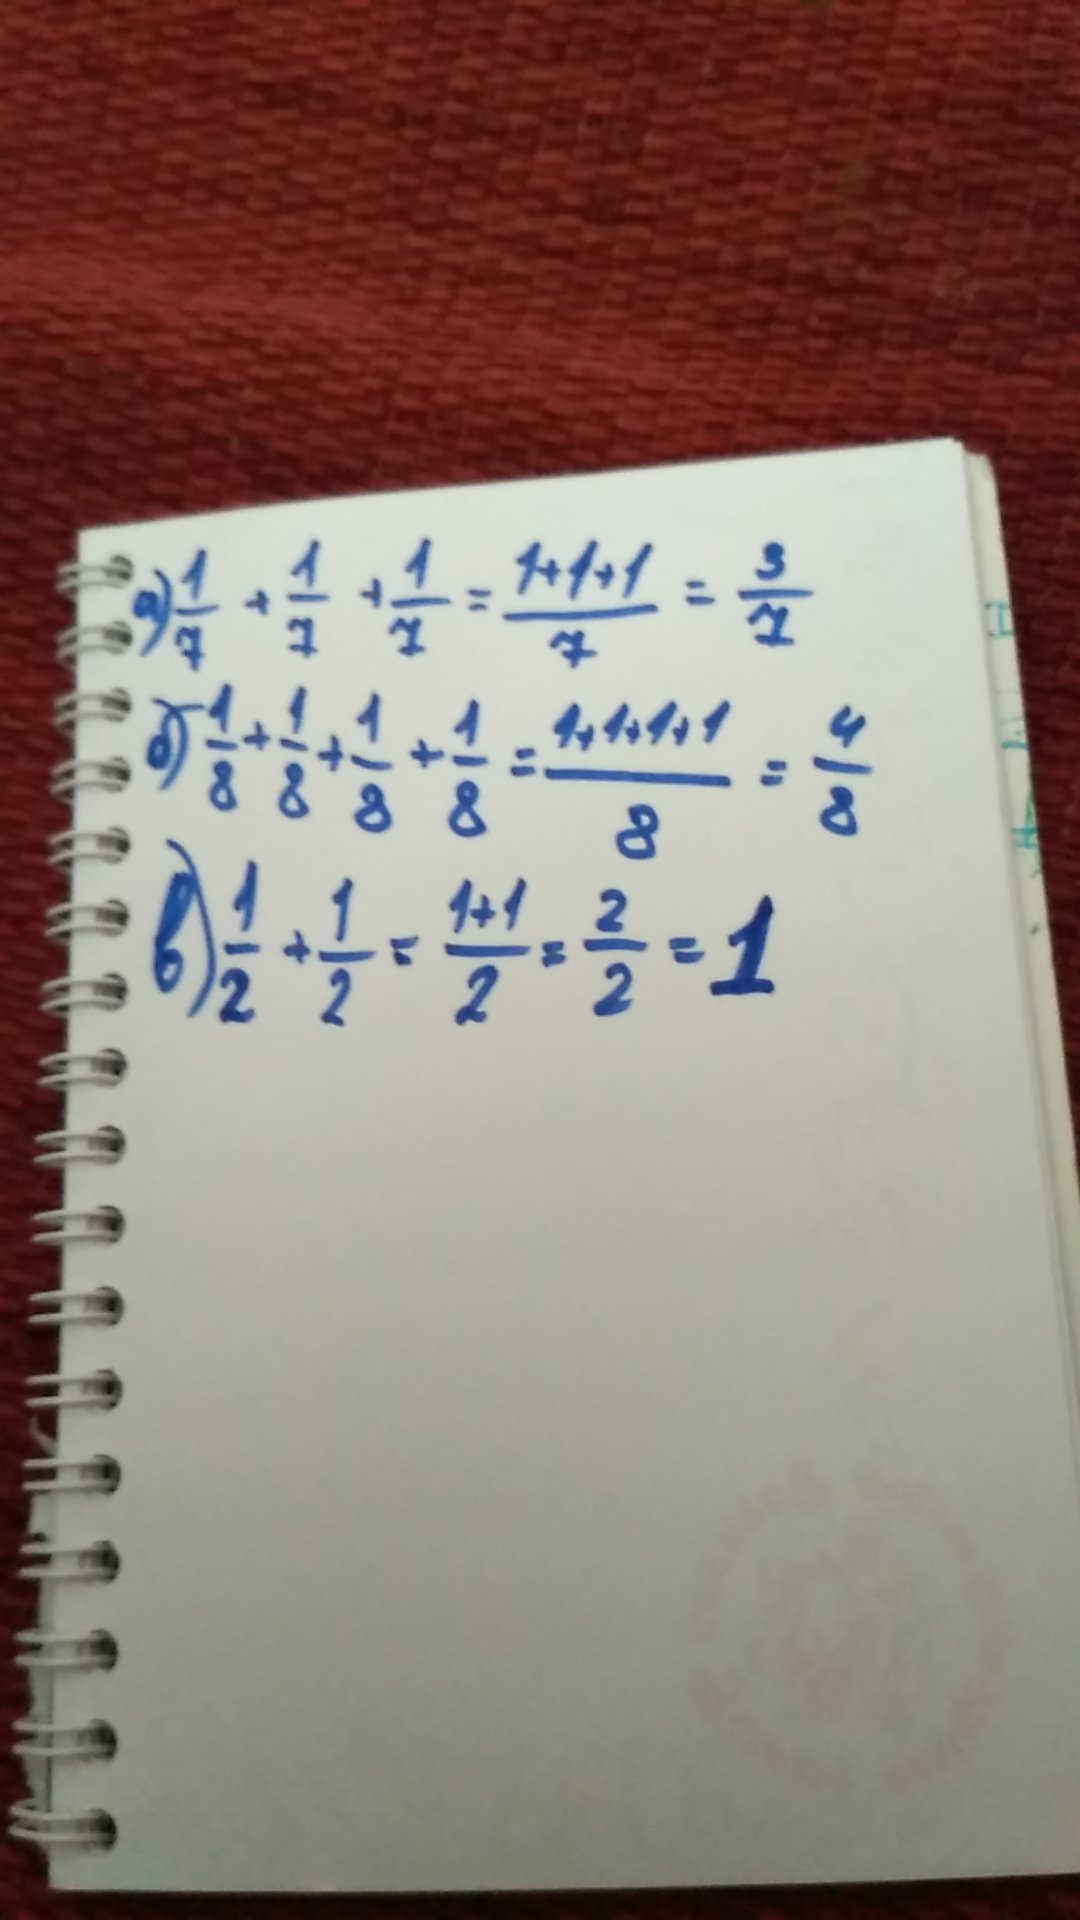 а) 1/7 + 1/7 + 1/7 = 1+1+1/7 = 3/7
б) 1/8 + 1/8 + 1/8 + 1/8 = 1+1+1+1/8 = 4/8
в) 1/2 + 1/2 = 1+1/2 = 2/2 = 1